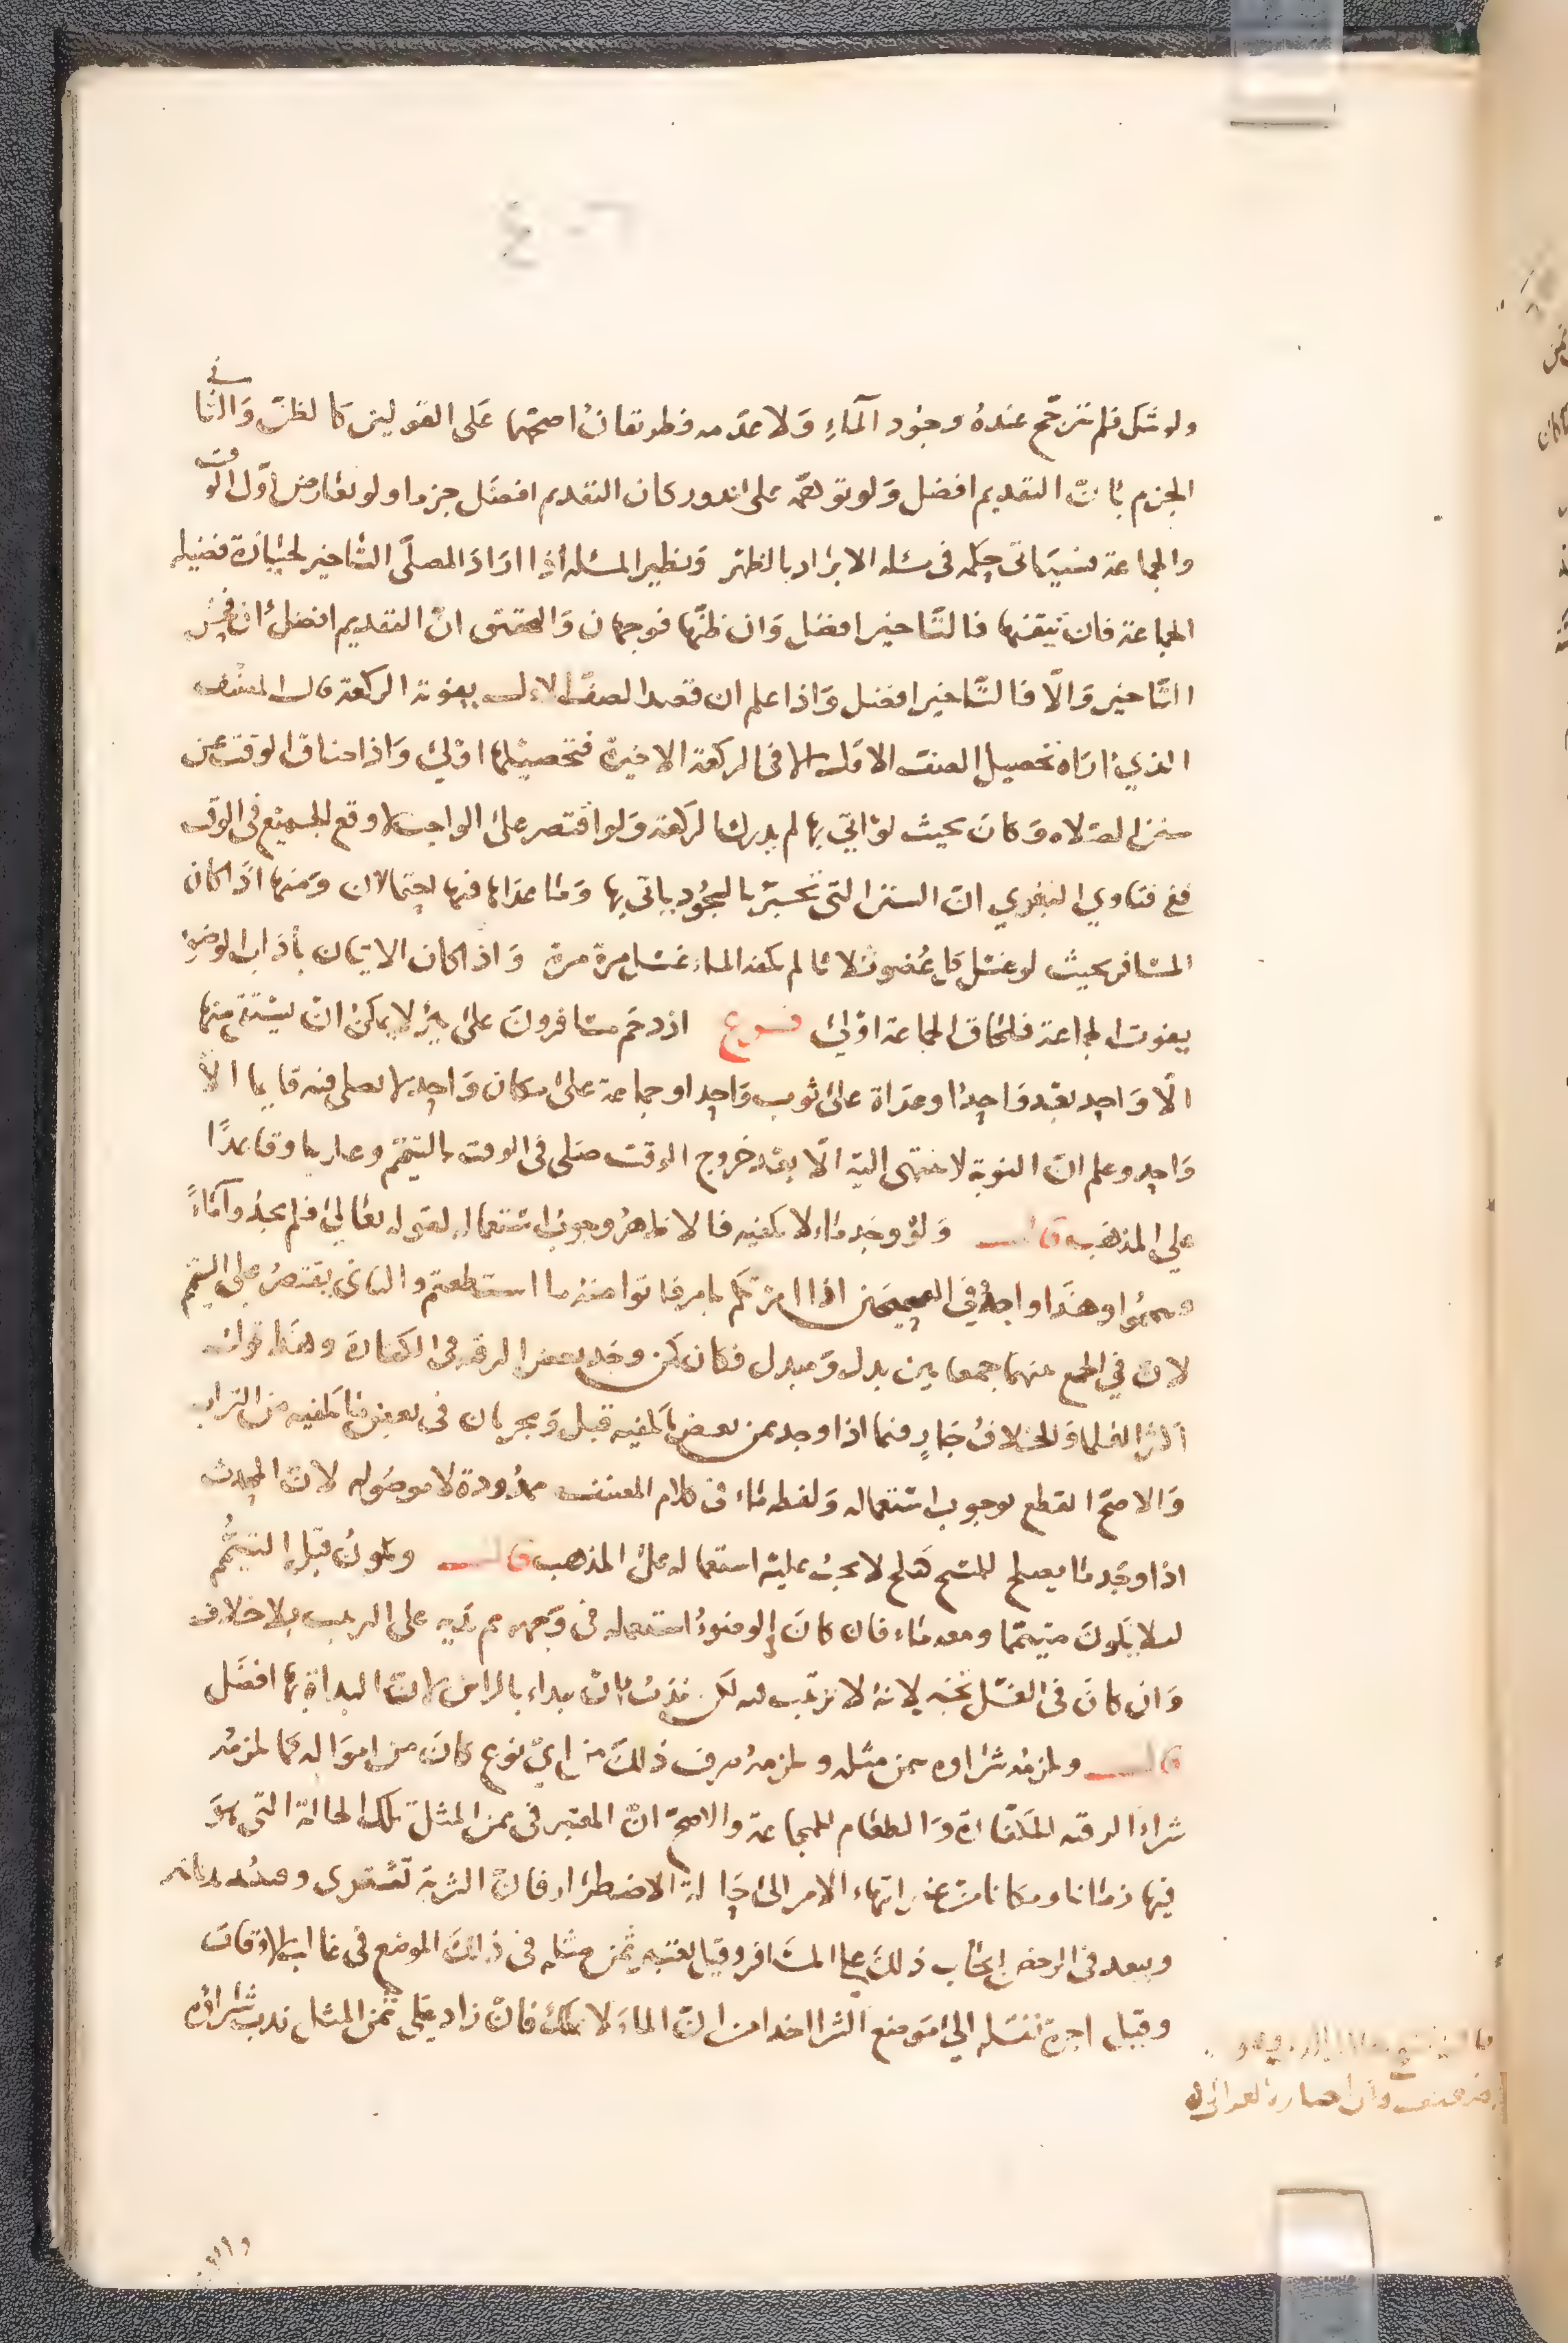 ولو شك فلم يترجح عنده وجود الماء ولا عدمه فطريقان اصحهما على القولين كالظن والثاني
الجزم بان التقديم افضل ولو توهمه على ندور كان التقديم افضل جزما ولو تعارض اول الوقت
والجماعة فسياتي حكمه في مسئلة الابراد بالظهر ونظير المسئله اذا اراد المصلي التاخير لحيازة فضيله
الجماعة فان تيقنها فالتاخير افضل وان ظنها فوجهان والمحقق ان التقديم افضل ان فحش
التاخير والا فالتاخير افضل واذا علم ان قصد الصف الاول يفوته الركعة قال المصنف
الذي اراه تحصيل الصف الاول الا في الركعة الاخيرة فتحصيلها اولى واذا ضاق الوقت عن
سنن الصلاه وكان بحيث لو اتى بها لم يدرك الركعة ولو اقتصر على الواجب لاوقع الجميع في الوقت
ففي فتاوي البغوي ان السنن التي تجبر بالسجود ياتي بها وما عداها فيها احتمالان ومنها اذا كان
المسافر بحيث لو غسل كل عضو ثلاثا لم يكفه الماء غسل مرة مرة واذا كان الاتيان باداب الوضوء
يفوت الجماعة فلحاق الجماعة اولى فروع ازدحم مسافرون على بير لا يمكن ان يستقي منها
الا واحد بعد واحد او عراة على ثوب واحد او جماعة على مكان واحد لا يصلي فيه قايما الا
واحد وعلم ان النوبة لا تنتهي اليه الا بعد خروج الوقت صلى في الوقت بالتيمم وعاريا وقاعدا
على المذهب قال ولو وجد ماء لا يكفيه فالاظهر وجوب استعماله لقوله تعالى فلم تجدوا ماء
فتيمموا وهذا واجد وفي الصحيحين اذا امرتكم بامر فاتوا منه ما استطعتم والثاني يقتصر على التيمم
لان في الجمع بينهما جمعا بين بدل ومبدل فكان كمن وجد بعض الرقبه في الكفارة وهذا قول
اكثر العلما والخلاف جار فيما اذا وجد ثمن بعض ما يكفيه قيل ويجريان في بعض ما يكفيه من التراب
والاصح القطع بوجوب استعماله ولفظه ماء في كلام المصنف ممدودة لا موصوله لان المحدث
اذا وجد ما يصلح للمسح كثلج لا يجب عليه استعماله على المذهب قال ويكون قبل التيمم
لئلا يكون متيمما ومعه ماء فان كان في الوضوء استعمله في وجهه ثم يديه على الترتيب بلا خلاف
وان كان في الغسل تخير لانه لا ترتيب فيه لكن يندب ان يبدا بالراس لان البداة بها افضل
قال ولزمه شراوه بثمن مثله ولزمه صرف ذلك من اي نوع كان من امواله كما لزمه
شراء الرقبه للكفارة والطعام للمجاعة والاصح ان المعتبر في ثمن المثل تلك الحالة التي هو
فيها زمانا ومكانا من غير انتهاء الامر الى حالة الاضطرار فان الشربة تشترى وعنده بدنانير
ويبعد في الرخص ايجاب ذلك على المسافر وقيل يعتبر ثمن مثله في ذلك الموضع في غالب الاوقات
وقيل اجرة نقله الى موضع الشرا اخذا من ان الماء لا يملك فان زاد على ثمن المثل ندب شراؤه